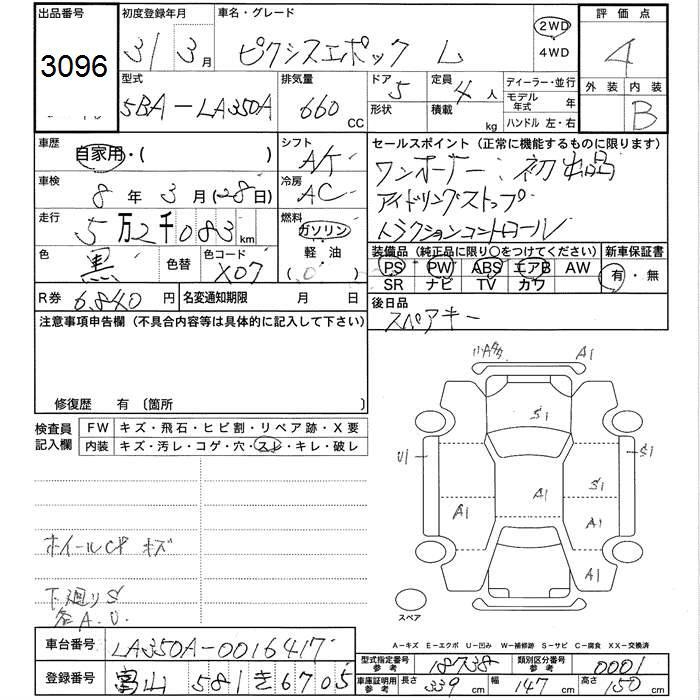 出品番号 初度登録年月 車名・グレード 2WD 4WD 評価点
3096 31 3月 ピクシスエポック L 4
型式 排気量 ドア 定員 ディーラー・並行 外装 内装
5BA-LA350A 660 CC 5 4人 形状 積載 kg モデル年式 年 ハンドル 左・右 B
車歴 自家用・( ) シフト A/T セールスポイント (正常に機能するものに限ります)
ワンオーナー 初出品
車検 8年 3月(28日) 冷房 AC アイドリングストップ
走行 5万2千083km 燃料 ガソリン 軽油 ( ) トラクションコントロール
色 黒 色替 色コード X07 装備品 (純正品に限り〇をつけてください) 新車保証書
PS PW ABS エアB AW 有・無
SR ナビ TV カワ
R券 6,840円 名変通知期限 月 日 後日品
スペアキー
注意事項申告欄 (不具合内容等は具体的に記入して下さい)
修復歴 有 〔箇所
検査員記入欄 FW キズ・飛石・ヒビ割・リペア跡・X要
内装 キズ・汚レ・コゲ・穴・スレ・キレ・破レ
小A多 A1
S1
U1 S1
A1 A1 S1
A1
A1
ホイールCP キズ
下廻りS
各A.U.
スペア
A-キズ E-エクボ U-凹み W-補修跡 S-サビ C-腐食 XX-交換済
車台番号 LA350A-0016417
型式指定番号 参考 18738 類別区分番号 参考 0001
登録番号 富山 581 き 6705
車庫証明用 参考 長さ 339cm 幅 147cm 高さ 150cm